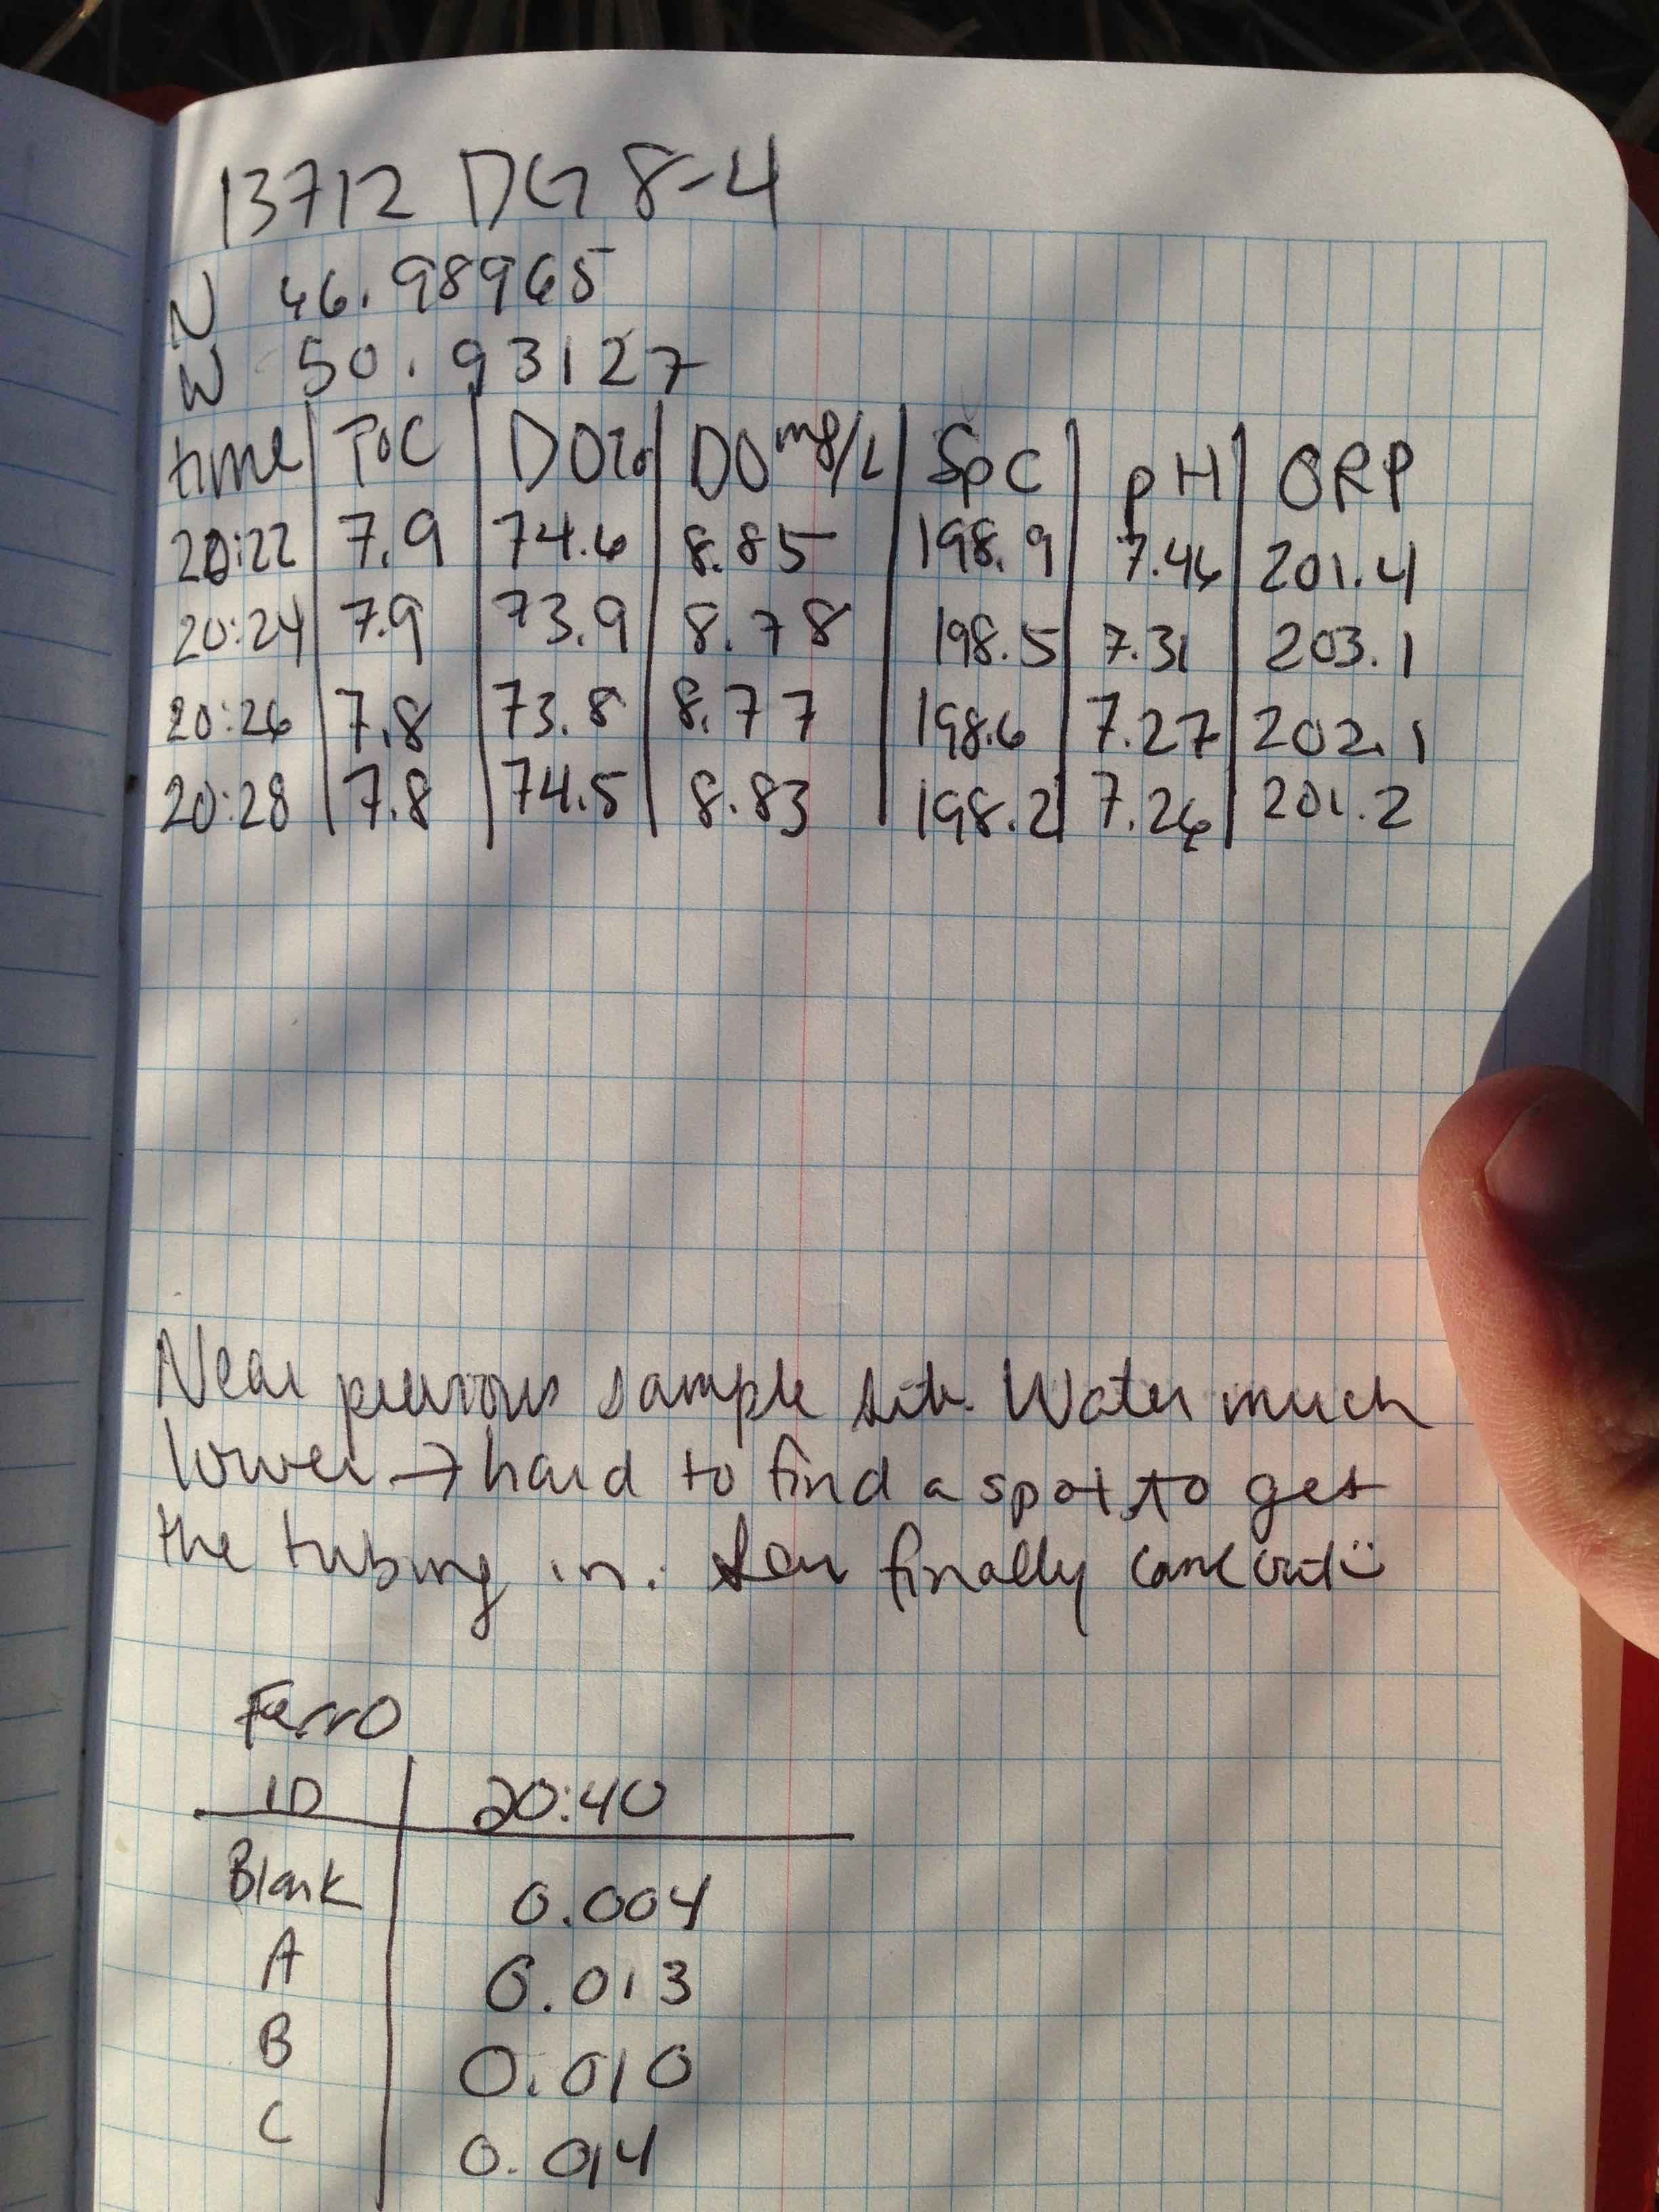 13712 DG 8-4
N 46.98965
W 50.93127
time | T°C | DO% | DO mg/L | SpC | pH | ORP
20:22 | 7.9 | 74.6 | 8.85 | 198.9 | 7.46 | 201.4
20:24 | 7.9 | 73.9 | 8.78 | 198.5 | 7.31 | 203.1
20:26 | 7.8 | 73.8 | 8.77 | 198.6 | 7.27 | 202.1
20:28 | 7.8 | 74.5 | 8.83 | 198.2 | 7.26 | 201.2
Near previous sample site. Water much
lower → hard to find a spot to get
the tubing in. Sun finally came out :)
Ferro
ID | 20:40
Blank | 0.004
A | 0.013
B | 0.010
C | 0.014